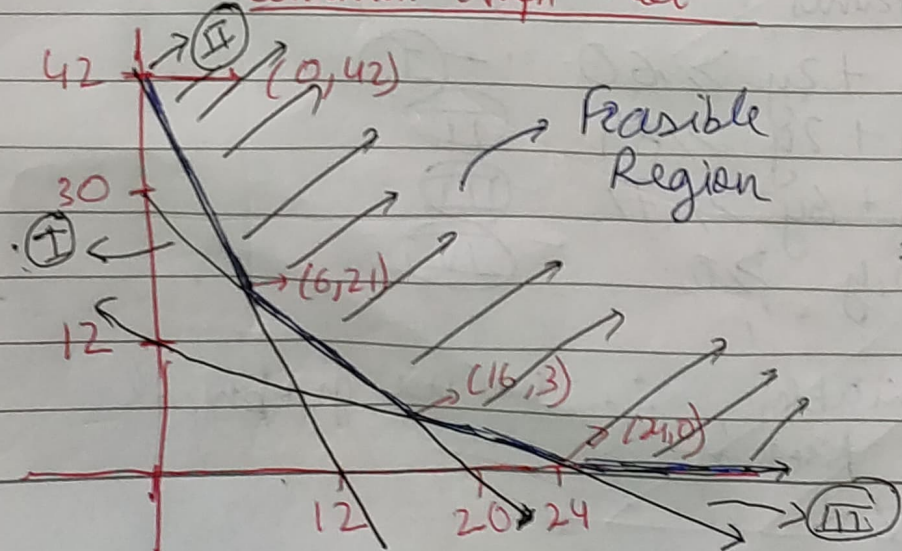 II
42
(0,42)
Feasible
Region
30
I
(6,21)
12
(16,3)
(24,0)
12
20
24
III